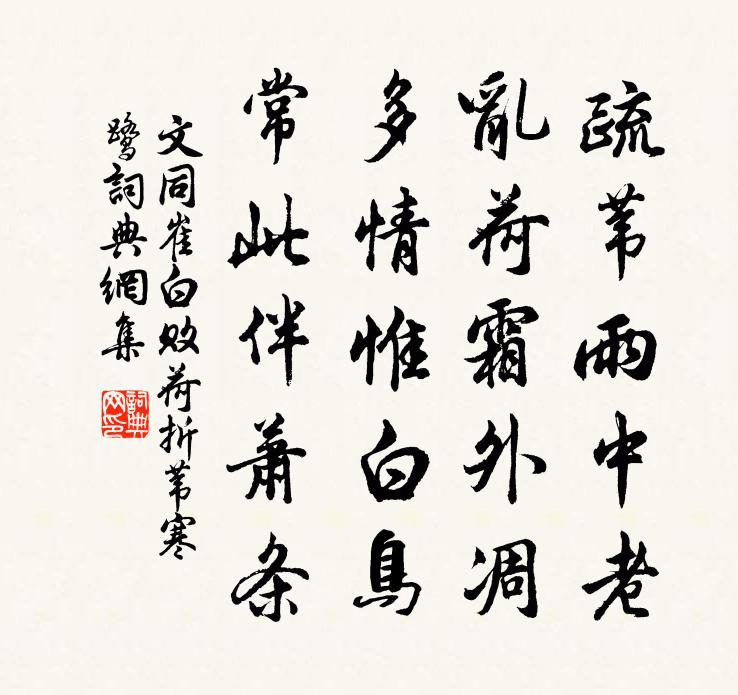 疏苇雨中老
亂荷霜外凋
多情惟白鳥
常此伴蕭条
文同崔白败荷折苇寒
鹭詞典網集
詞典网印